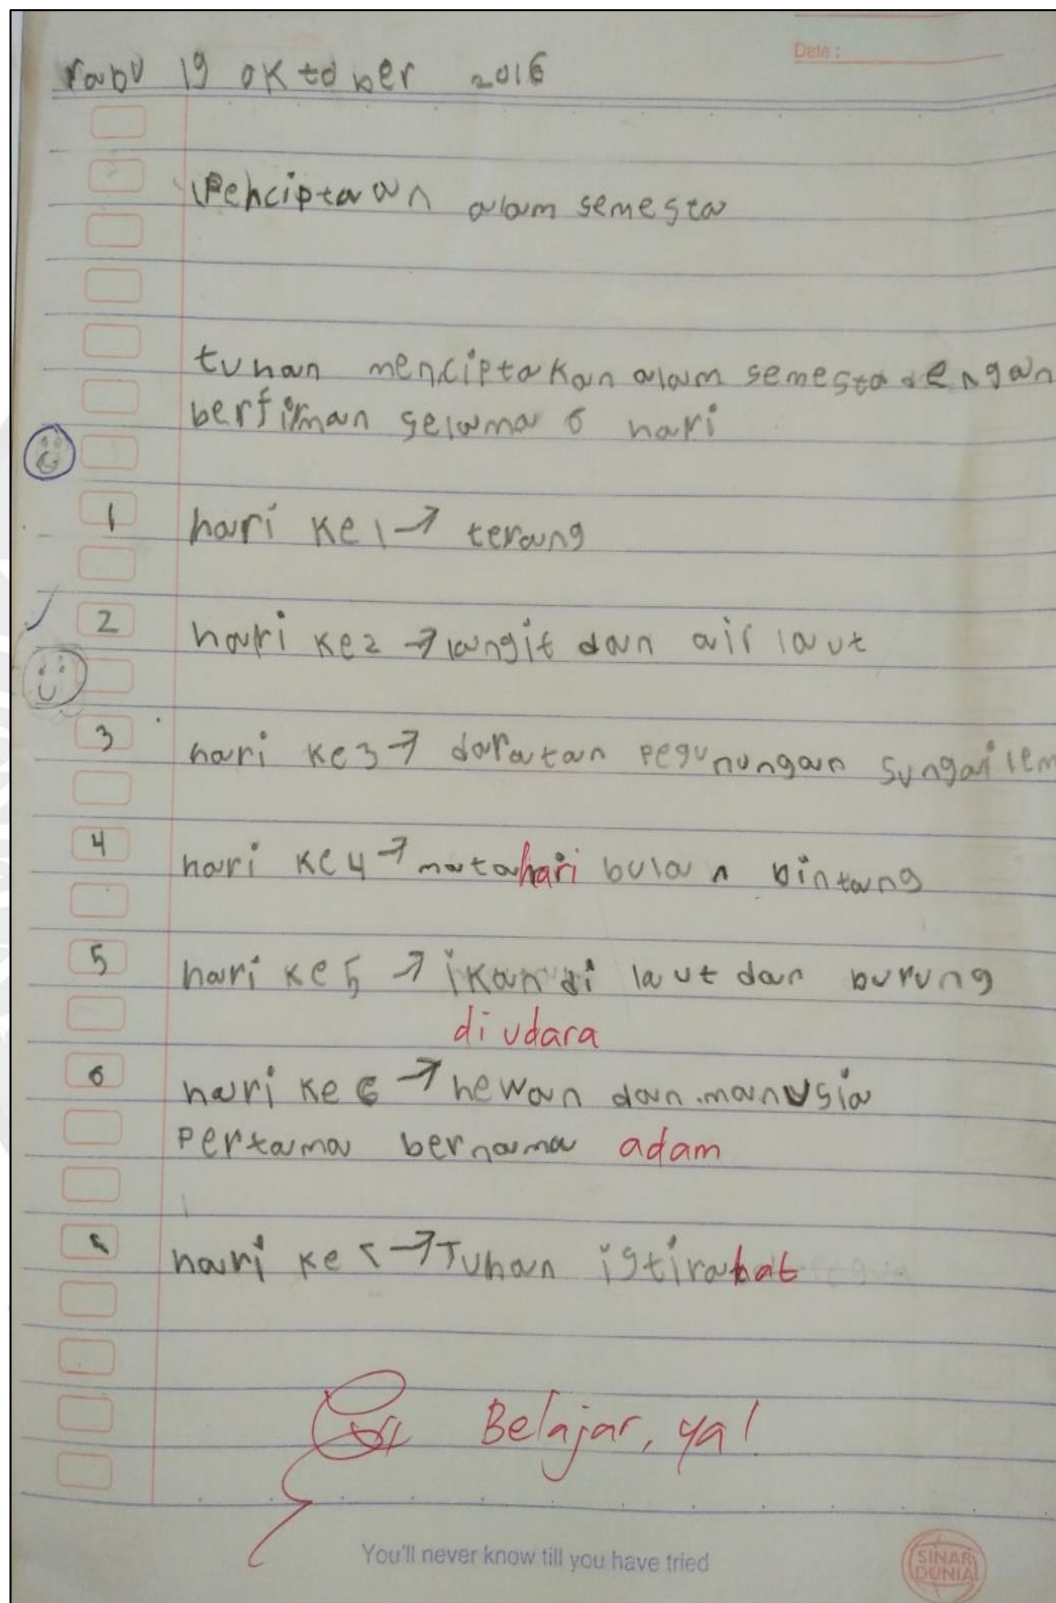 Date :
rabu 19 oktober 2016
Penciptaan alam semesta
tuhan menciptakan alam semesta dengan
berfirman selama 6 hari
1 hari ke 1 → terang
2 hari ke 2 → langit dan air laut
3 hari ke 3 → daratan pegunungan sungai lem
4 hari ke 4 → matahari bulan bintang
5 hari ke 5 → ikan di laut dan burung
di udara
6 hari ke 6 → hewan dan manusia
pertama bernama adam
hari ke → Tuhan istirahat
Belajar, ya!
You'll never know till you have tried
SINAR
DUNIA